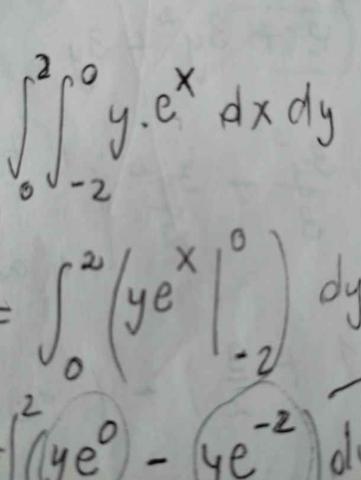 ∫₀² ∫₋₂⁰ y · eˣ dx dy
= ∫₀² (yeˣ |₋₂⁰) dy
∫² ((ye⁰) - (ye⁻²)) dy